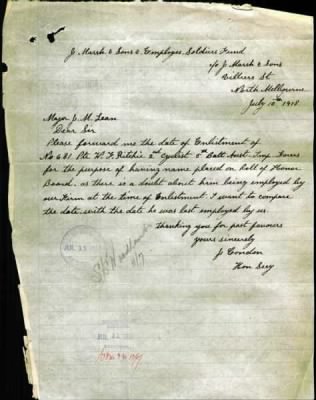 J. Marsh & Sons & Employes Soldiers Fund
c/o J. Marsh & Sons
Villiers St
North Melbourne
July 10th 1918
Major J. M. Lean
Dear Sir
Please forward me the date of Enlistment of
No 681 Pte W. F. Ritchie 2nd Cyclist Batt Aust. Imp. Forces
for the purpose of having name placed on Roll of Honor
Board, as there is a doubt about him being employed by
our Firm at the time of Enlistment. I want to compare
the date with the date he was last employed by us.
Thanking you for past favours
yours sincerely
J Condon
Hon Secy
JUL